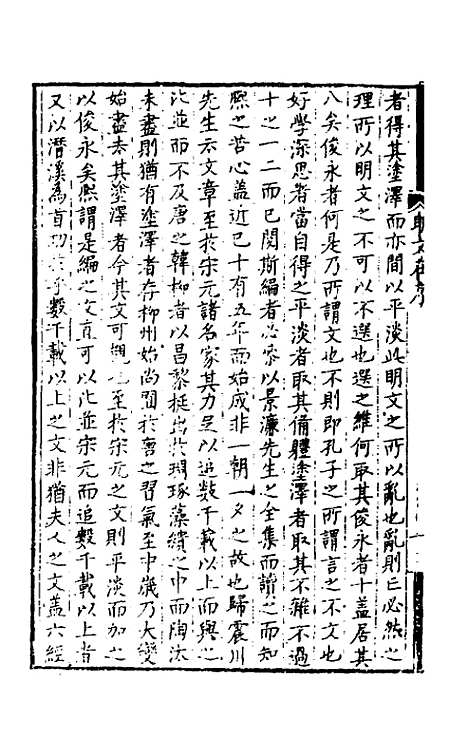 者得其塗澤而亦間以平淡此明文之所以亂也亂則已必然之
理所以明文之不可以不選也選之維何取其俊永者十蓋居其
八矣俊永者何是乃所謂文也不則即孔子之所謂言之不文也
好學深思者當自得之平淡者取其備體塗澤者取其不雜不過
十之一二而已閱斯編者必參以景濂先生之全集而讀之而知
熙之苦心蓋近已十有五年而始成非一朝一夕之故也歸震川
先生示云文章至於宋元諸名家其力足以追數千載以上而與之
比並而不及唐之韓柳者以昌黎挺出於琱琢藻繢之中而陶汰
未盡則猶有塗澤者存柳州始尚囿於舊之習氣至中歲乃大變
始盡去其塗澤者今其文可觀也至於宋元之文則平淡而加之
以俊永矣熙謂是編之文直可以比並宋元而追數千載以上者
又以潛溪為首功於乎數千載以上之文非猶夫人之文蓋六經
明文在序